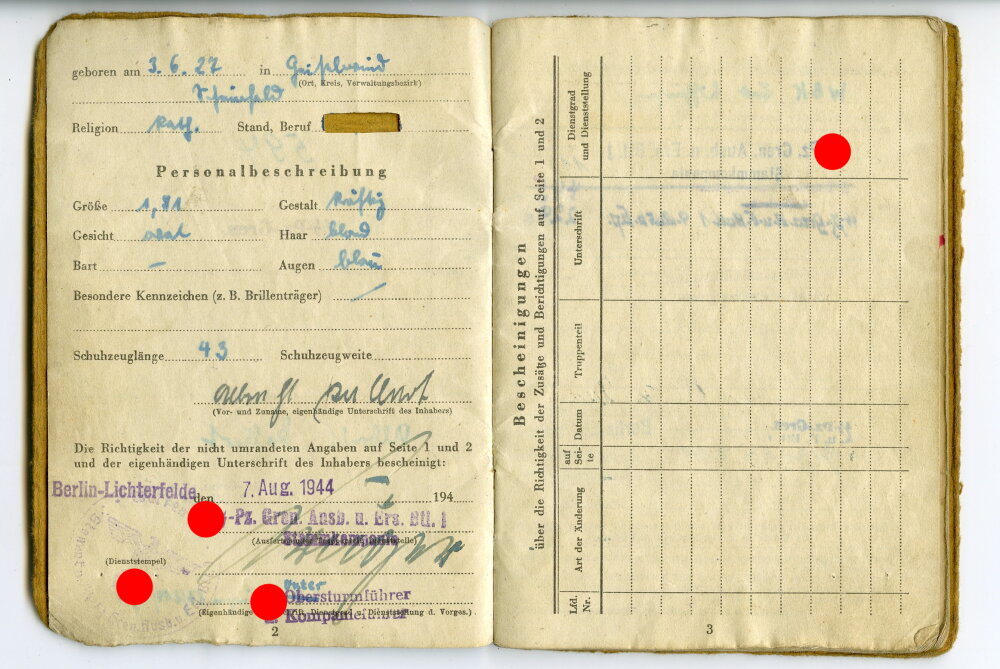 geboren am 3.6.27 in Geiselwind
(Ort, Kreis, Verwaltungsbezirk)
Scheinfeld
Religion kath. Stand, Beruf
Personalbeschreibung
Größe 1,81 Gestalt kräftig
Gesicht oval Haar blond
Bart — Augen blau
Besondere Kennzeichen (z. B. Brillenträger)
Schuhzeuglänge 43 Schuhzeugweite
(Vor- und Zuname, eigenhändige Unterschrift des Inhabers)
Die Richtigkeit der nicht umrandeten Angaben auf Seite 1 und 2
und der eigenhändigen Unterschrift des Inhabers bescheinigt:
Berlin-Lichterfelde, den 7. Aug. 1944 194
-Pz. Gren. Ausb. u. Ers. Btl. 1
Stammkompanie
(Dienststempel)
Unter
Obersturmführer
(Eigenhändige Dienstgrad u. Dienststellung d. Vorges.)
u. Kompanieführer
2
Bescheinigungen
über die Richtigkeit der Zusätze und Berichtigungen auf Seite 1 und 2
Lfd. Nr.
Art der Änderung
auf Sei-te
Datum
Truppenteil
Unterschrift
Dienstgrad und Dienststellung
3